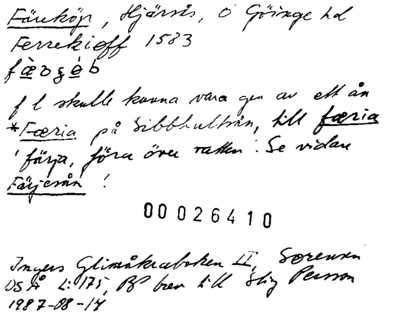 Färeköp, Hjärsås, Ö Göinge hd
Ferrekieff 1583
f l skulle kunna vara gen av ett ån
*Færia på Sibbhultsån, till færia
'färja, föra över vatten'. Se vidare
Färjesån!
00026410
Ingers Glimåkraboken II, Sørensen
DSÅ s. 175, BP brev till Stig Persson
1987-08-14